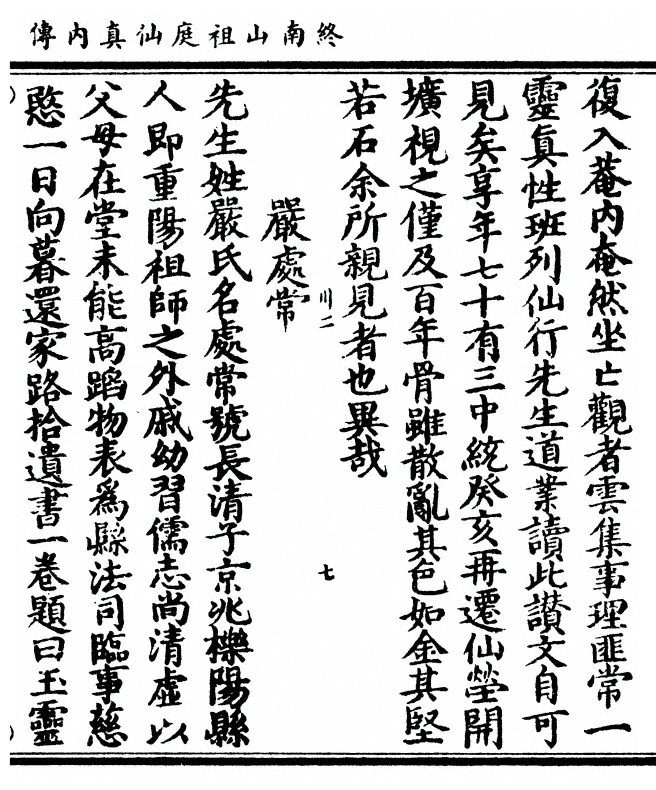 終南山祖庭仙真內傳
復入菴內奄然坐亡觀者雲集事理匪常一
靈真性班列仙行先生道業讀此讚文自可
見矣享年七十有三中統癸亥再遷仙塋開
壙視之僅及百年骨雖散亂其色如金其堅
若石余所親見者也異哉
川二
七
嚴處常
先生姓嚴氏名處常號長清子京兆櫟陽縣
人即重陽祖師之外戚幼習儒志尚清虛以
父母在堂未能高蹈物表爲縣法司臨事慈
愍一日向暮還家路拾遺書一卷題曰玉靈